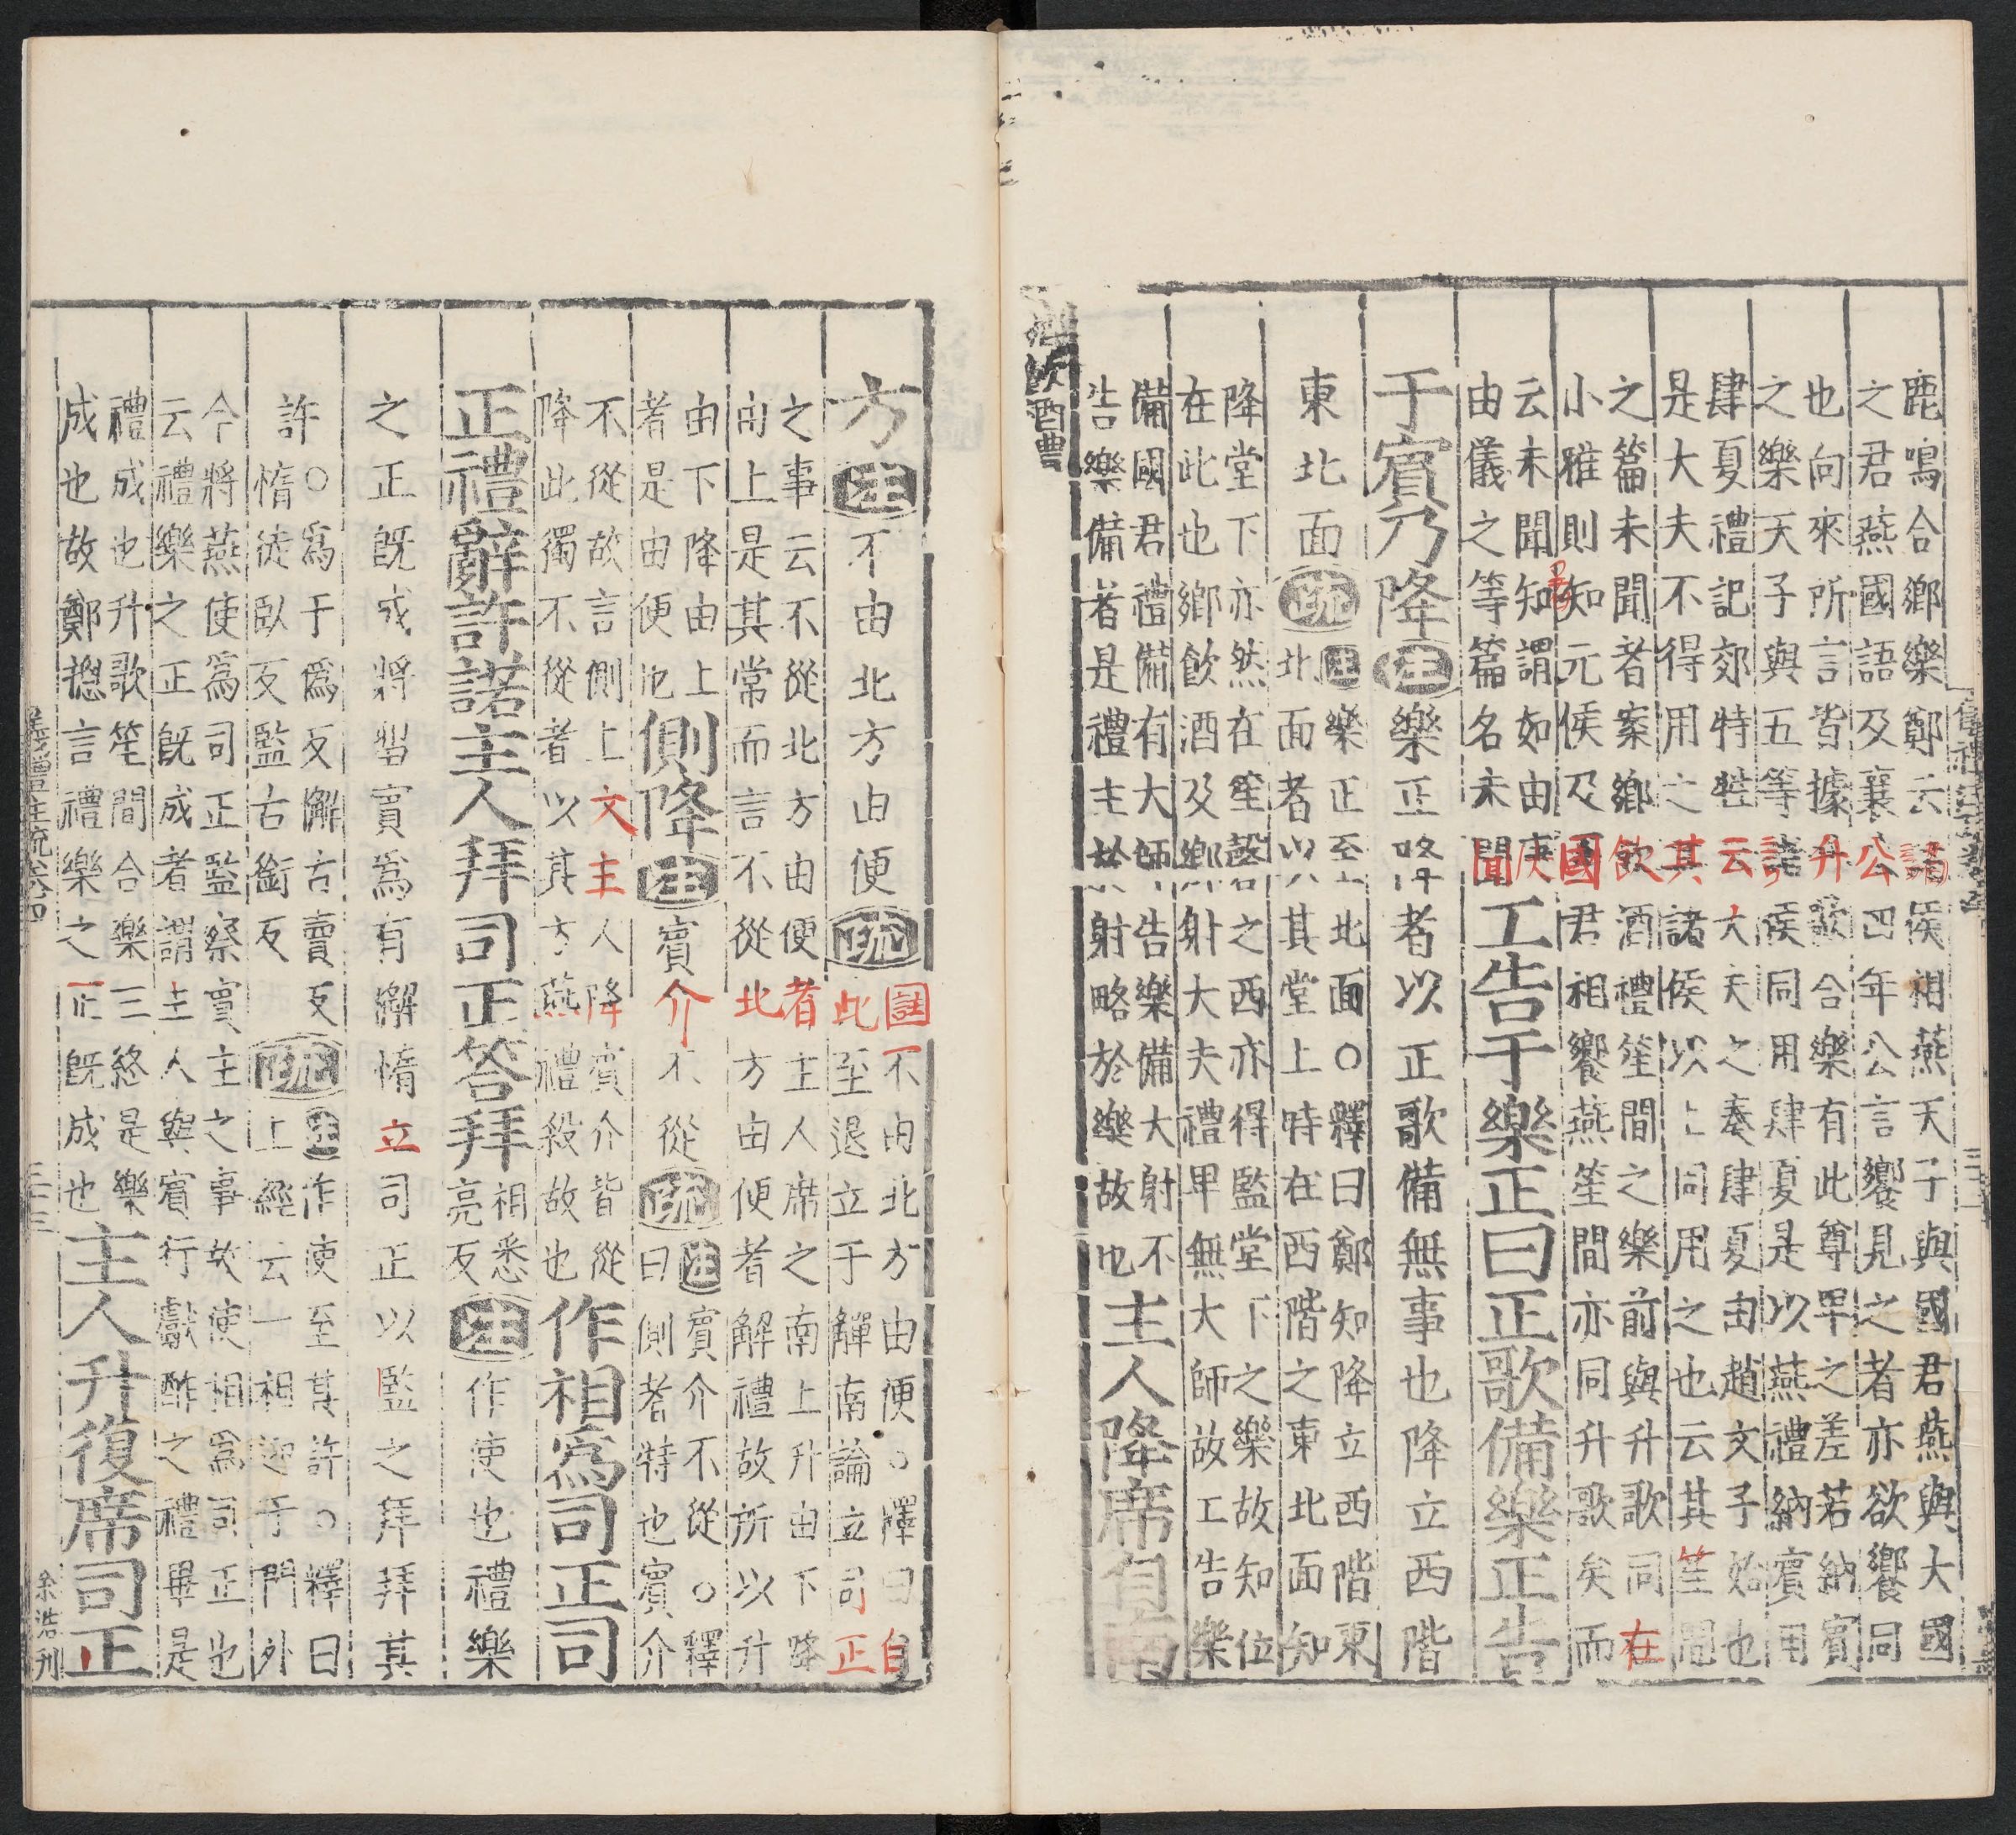 鹿鳴合鄉樂鄭云諸侯相燕天子與國君燕與大國
之君燕國語及襄公四年公言饗見之者亦欲饗同
也向來所言皆據升歌合樂有此尊卑之差若納賓
之樂天子與五等諸侯同用肆夏是以燕禮納賓用
肆夏禮記郊特牲云大夫之奏肆夏由趙文子始也
是大夫不得用之其諸侯以上同用之也云其笙間
之篇未聞者案鄉飲酒禮笙間之樂前與升歌同在
小雅則知元侯及國君相饗燕笙間亦同升歌矣而
云未聞知謂如由庚
由儀之等篇名未聞
工告于樂正曰正歌備樂正告
于賓乃降注樂正降者以正歌備無事也降立西階
東北面疏
注樂正至北面○釋曰鄭知降立西階東
北面者以其堂上時在西階之東北面知
降堂下亦然在笙磬之西亦得監堂下之樂故知位
在此也鄉飲酒及鄉射大夫禮卑無大師故工告樂
備國君禮備有大師告樂備大射不
告樂備者是禮主於射略於樂故也
主人降席自南
方注不由北方由便疏
註不由北方由便○釋曰自
此至退立于觶南論立司正
之事云不從北方由便者主人席之南上升由下降
由上是其常而言不從北方由便者解禮故所以升
由下降由上
者是由便也
側降注賓介不從疏
注賓介不從○釋
曰側者特也賓介
不從故言側上文主人降賓介皆從
降此獨不從者以其方燕禮殺故也
作相爲司正司
正禮辭許諾主人拜司正答拜
相悉
亮反
注作使也禮樂
之正既成將留賓爲有懈惰立司正以監之拜拜其
許
○爲于僞反懈古賣反
惰徒臥反監古銜反
疏
注作使至其許○釋曰
上經云一相迎于門外
今將燕使爲司正監察賓主之事故使相爲司正也
云禮樂之正既成者謂主人與賓行獻酢之禮畢是
禮成也升歌笙間合樂三終是樂
成也故鄭摠言禮樂之正既成也
主人升復席司正
余浩刊